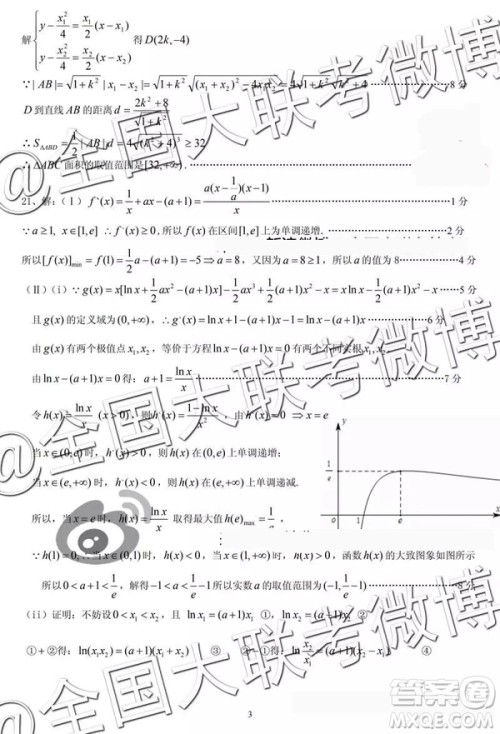 解 { y - x₁²/4 = x₁/2 (x - x₁)
y - x₂²/4 = x₂/2 (x - x₂) 得 D(2k, -4)
∵ |AB| = √(1+k²) |x₁ - x₂| = √(1+k²) √((x₁+x₂)² - 4x₁x₂) = 4√(1+k²) √(k²+4) ……8分
D 到直线 AB 的距离 d = (2k²+8)/√(1+k²)
∴ S△ABD = 1/2 |AB| d = 4√((k²+4)³) ≥ 32
∴ △ABC 面积的取值范围是 [32, +∞).
21、解：(Ⅰ) f'(x) = 1/x + ax - (a+1) = a(x - 1/a)(x-1)/x ……1分
∵ a ≥ 1, x∈[1,e] ∴ f'(x) ≥ 0, 所以 f(x) 在区间[1,e] 上为单调递增.
所以 [f(x)]min = f(1) = 1/2 a - (a+1) = -5 ⇒ a = 8, 又因为 a = 8 ≥ 1, 所以 a 的值为 8 ……4分
(Ⅱ) (i) ∵ g(x) = x[ln x + 1/2 ax² - (a+1)x] - 1/2 ax³ + 1/2 (a+1)x² ……6分
且 g(x) 的定义域为 (0,+∞), ∴ g'(x) = ln x + 1 - (a+1)x - 1 = ln x - (a+1)x ……6分
由 g(x) 有两个极值点 x₁, x₂, 等价于方程 ln x - (a+1)x = 0 有两个不同实根 x₁, x₂
由 ln x - (a+1)x = 0 得: a+1 = ln x / x ……7分
令 h(x) = ln x / x (x>0), 则 h'(x) = (1 - ln x)/x², 由 h'(x) = 0 ⇒ x = e
当 x∈(0,e) 时, h'(x) > 0, 则 h(x) 在 (0,e) 上单调递增;
当 x∈(e,+∞) 时, h'(x) < 0, 则 h(x) 在 (e,+∞) 上单调递减.
所以, 当 x = e 时, h(x) = ln x / x 取得最大值 h(e)max = 1/e,
y
1/e
o 1 e x
∵ h(1) = 0, ∴ 当 x∈(0,1) 时, h(x) < 0, 当 x∈(1,+∞) 时, h(x) > 0, 函数 h(x) 的大致图象如图所示
所以 0 < a+1 < 1/e, 解得 -1 < a < 1/e - 1 所以实数 a 的取值范围为 (-1, 1/e - 1) ……8分
(ii) 证明: 不妨设 0 < x₁ < x₂, 且 ln x₁ = (a+1)x₁ ①, ln x₂ = (a+1)x₂ ②
①+②得: ln(x₁x₂) = (a+1)(x₁+x₂) ③ ②-①得: ln x₂/x₁ = (a+1)(x₂ - x₁) ④
3
@全国大联考微博
@全国大联考微博
答案圈
MXQE.COM